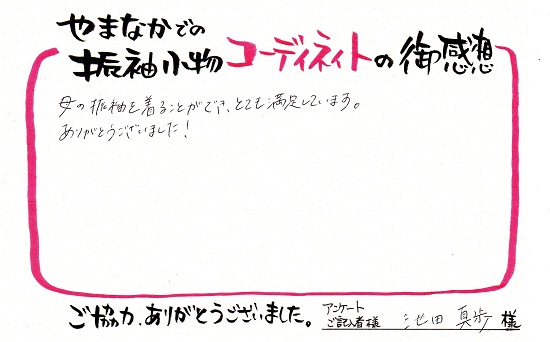 やまなかでの
振袖小物コーディネイトの御感想
母の振袖を着ることができ、とても満足しています。
ありがとうございました!
ご協力、ありがとうございました。
アンケート
ご記入者様 池田 真歩 様